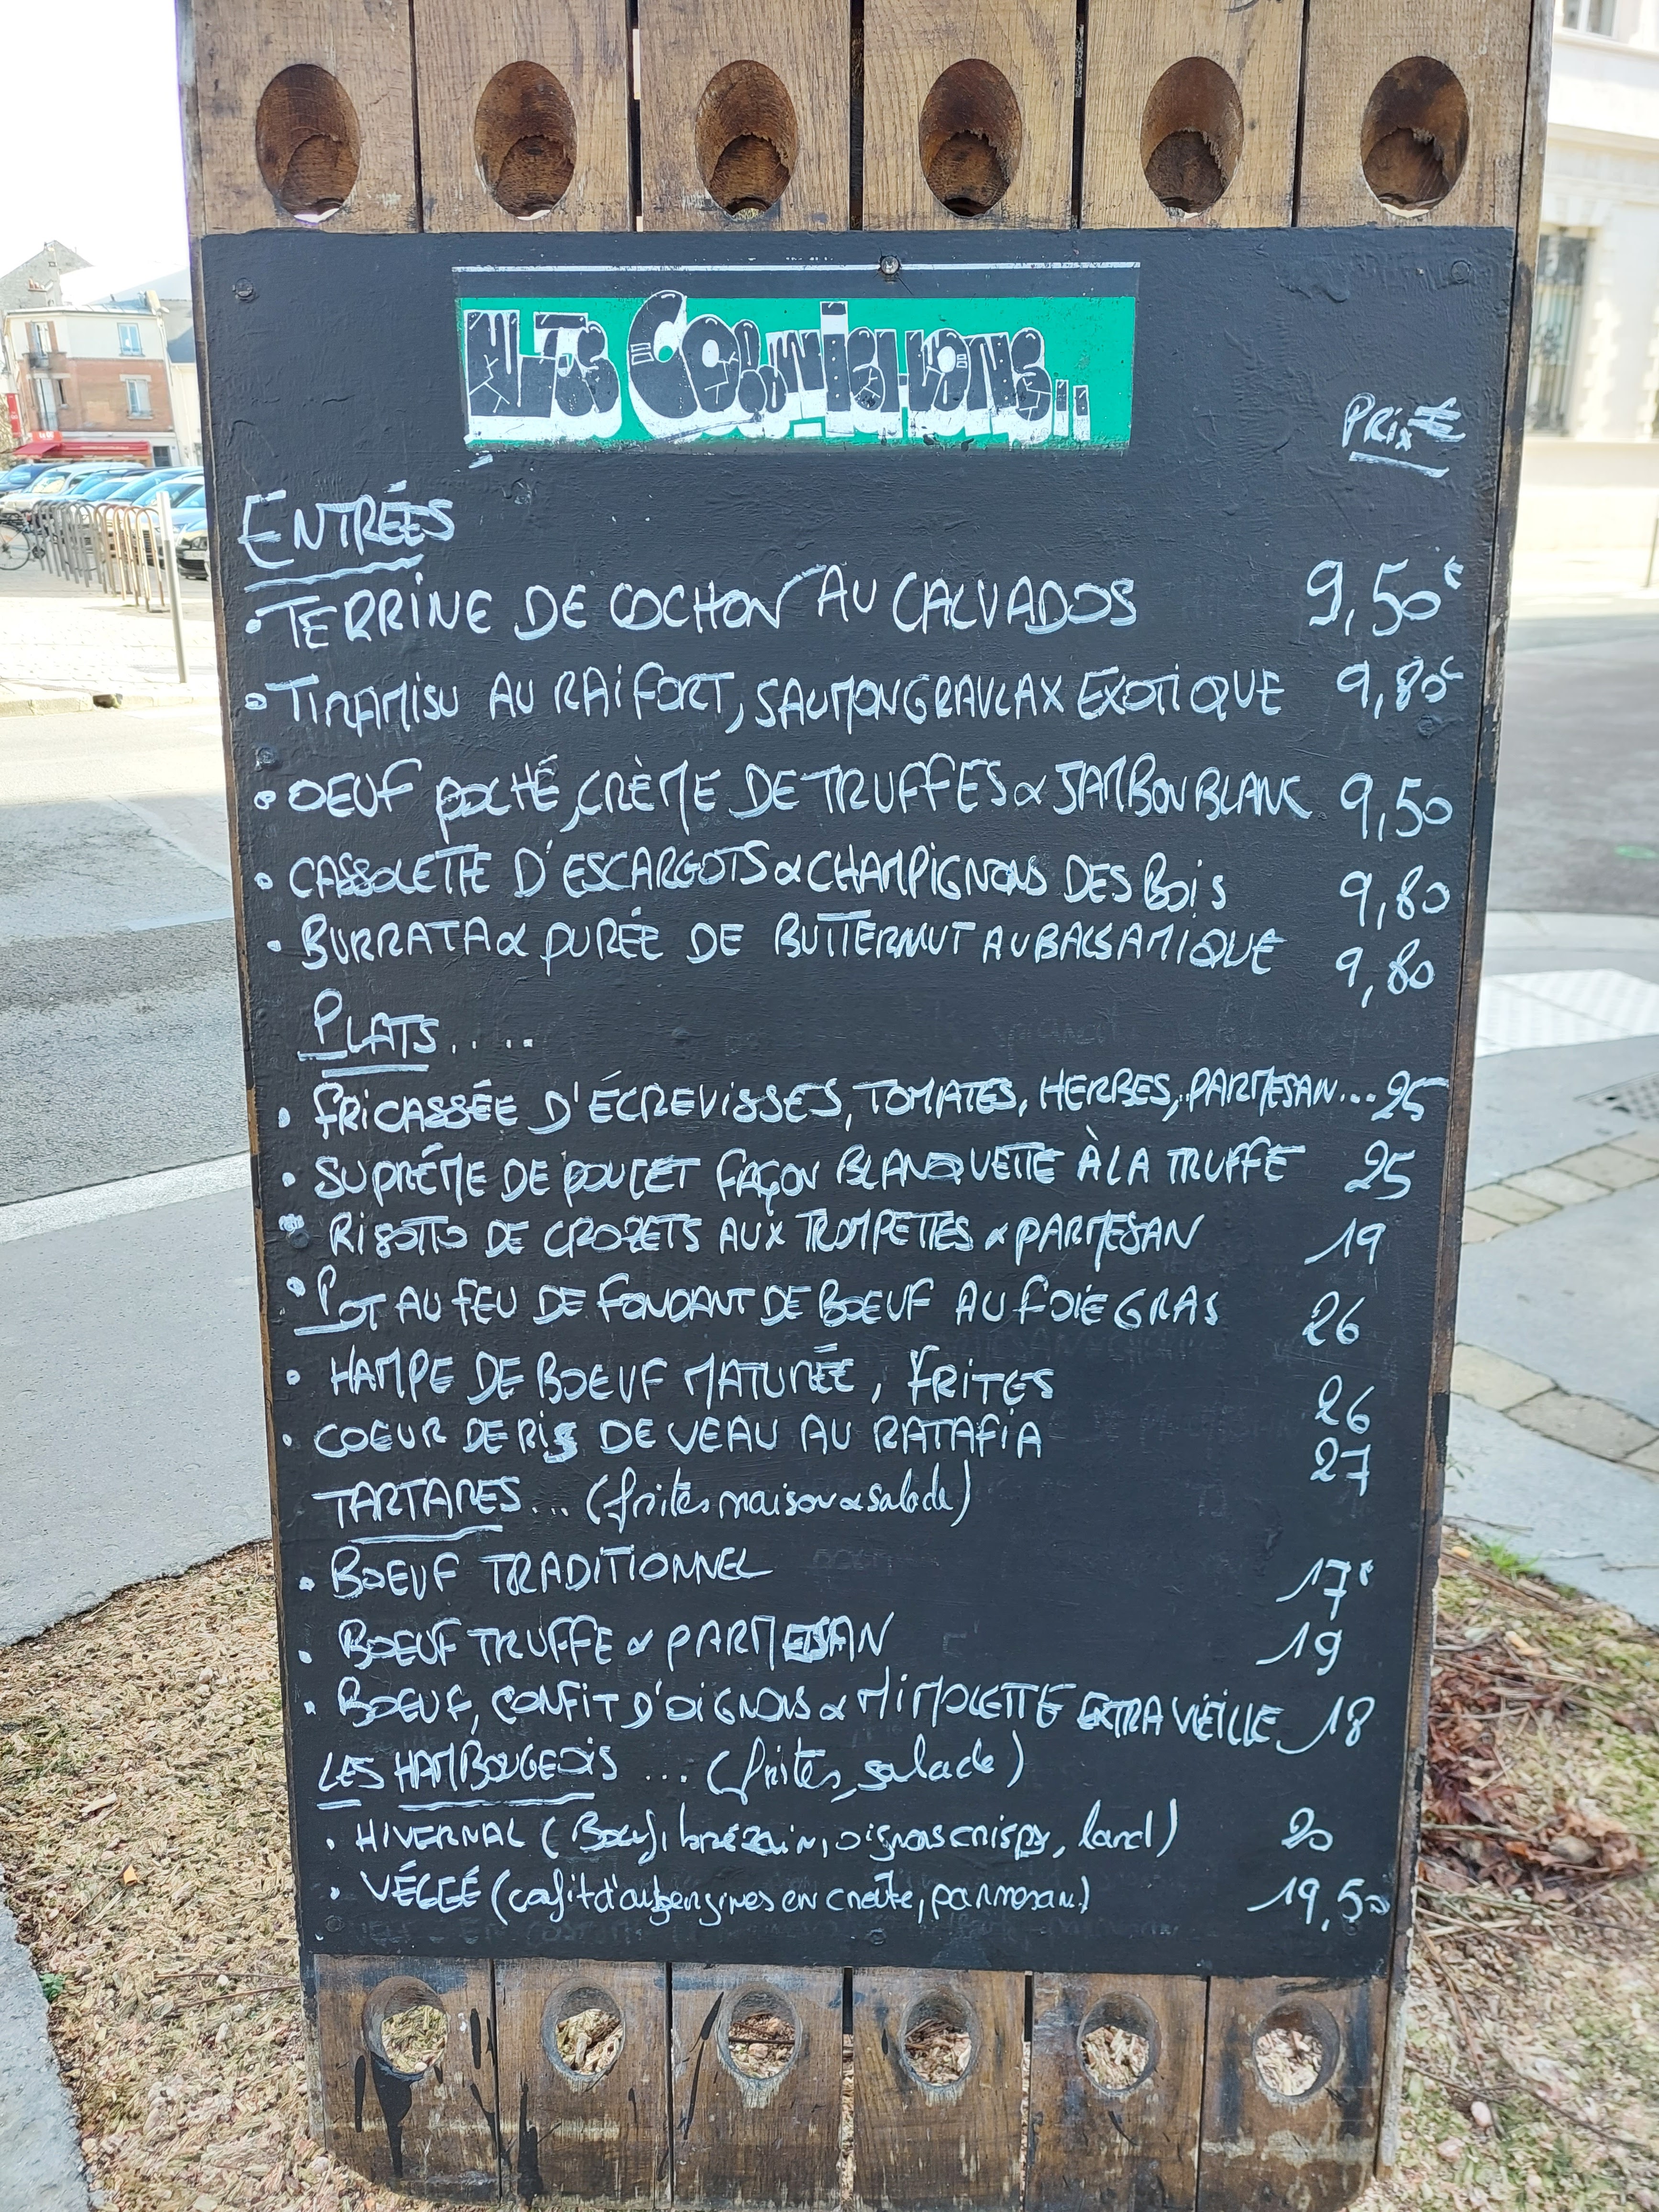 Les Cornichons..
Prix €
ENTRÉES
• TERRINE DE COCHON AU CALVADOS 9,50€
• TIRAMISU AU RAIFORT, SAUMON GRAVLAX EXOTIQUE 9,80€
• OEUF POCHÉ, CRÈME DE TRUFFES & JAMBON BLANC 9,50
• CASSOLETTE D'ESCARGOTS & CHAMPIGNONS DES BOIS 9,80
• BURRATA & PURÉE DE BUTTERNUT AU BALSAMIQUE 9,80
PLATS.....
• FRICASSÉE D'ÉCREVISSES, TOMATES, HERBES, PARMESAN... 25
• SUPRÊME DE POULET FAÇON BLANQUETTE À LA TRUFFE 25
• RISOTTO DE CROZETS AUX TROMPETTES & PARMESAN 19
• POT AU FEU DE FONDANT DE BOEUF AU FOIE GRAS 26
• HAMPE DE BOEUF MATURÉE, FRITES 26
• COEUR DE RIS DE VEAU AU RATAFIA 27
TARTARES... (frites maison & salade)
• BOEUF TRADITIONNEL 17€
• BOEUF TRUFFE & PARMESAN 19
• BOEUF, CONFIT D'OIGNONS & MIMOLETTE EXTRA VIEILLE 18
LES HAMBOUGEOIS ... (frites, salade)
• HIVERNAL (Boeuf, brézain, oignons crispy, lard) 20
• VÉGGÉ (confit d'aubergines en croûte, parmesan) 19,50